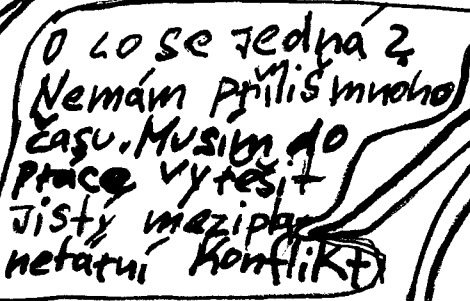 O co se jedná?
Nemám příliš mnoho
času. Musím do
práce vyřešit
jistý mezipla-
netární konflikt